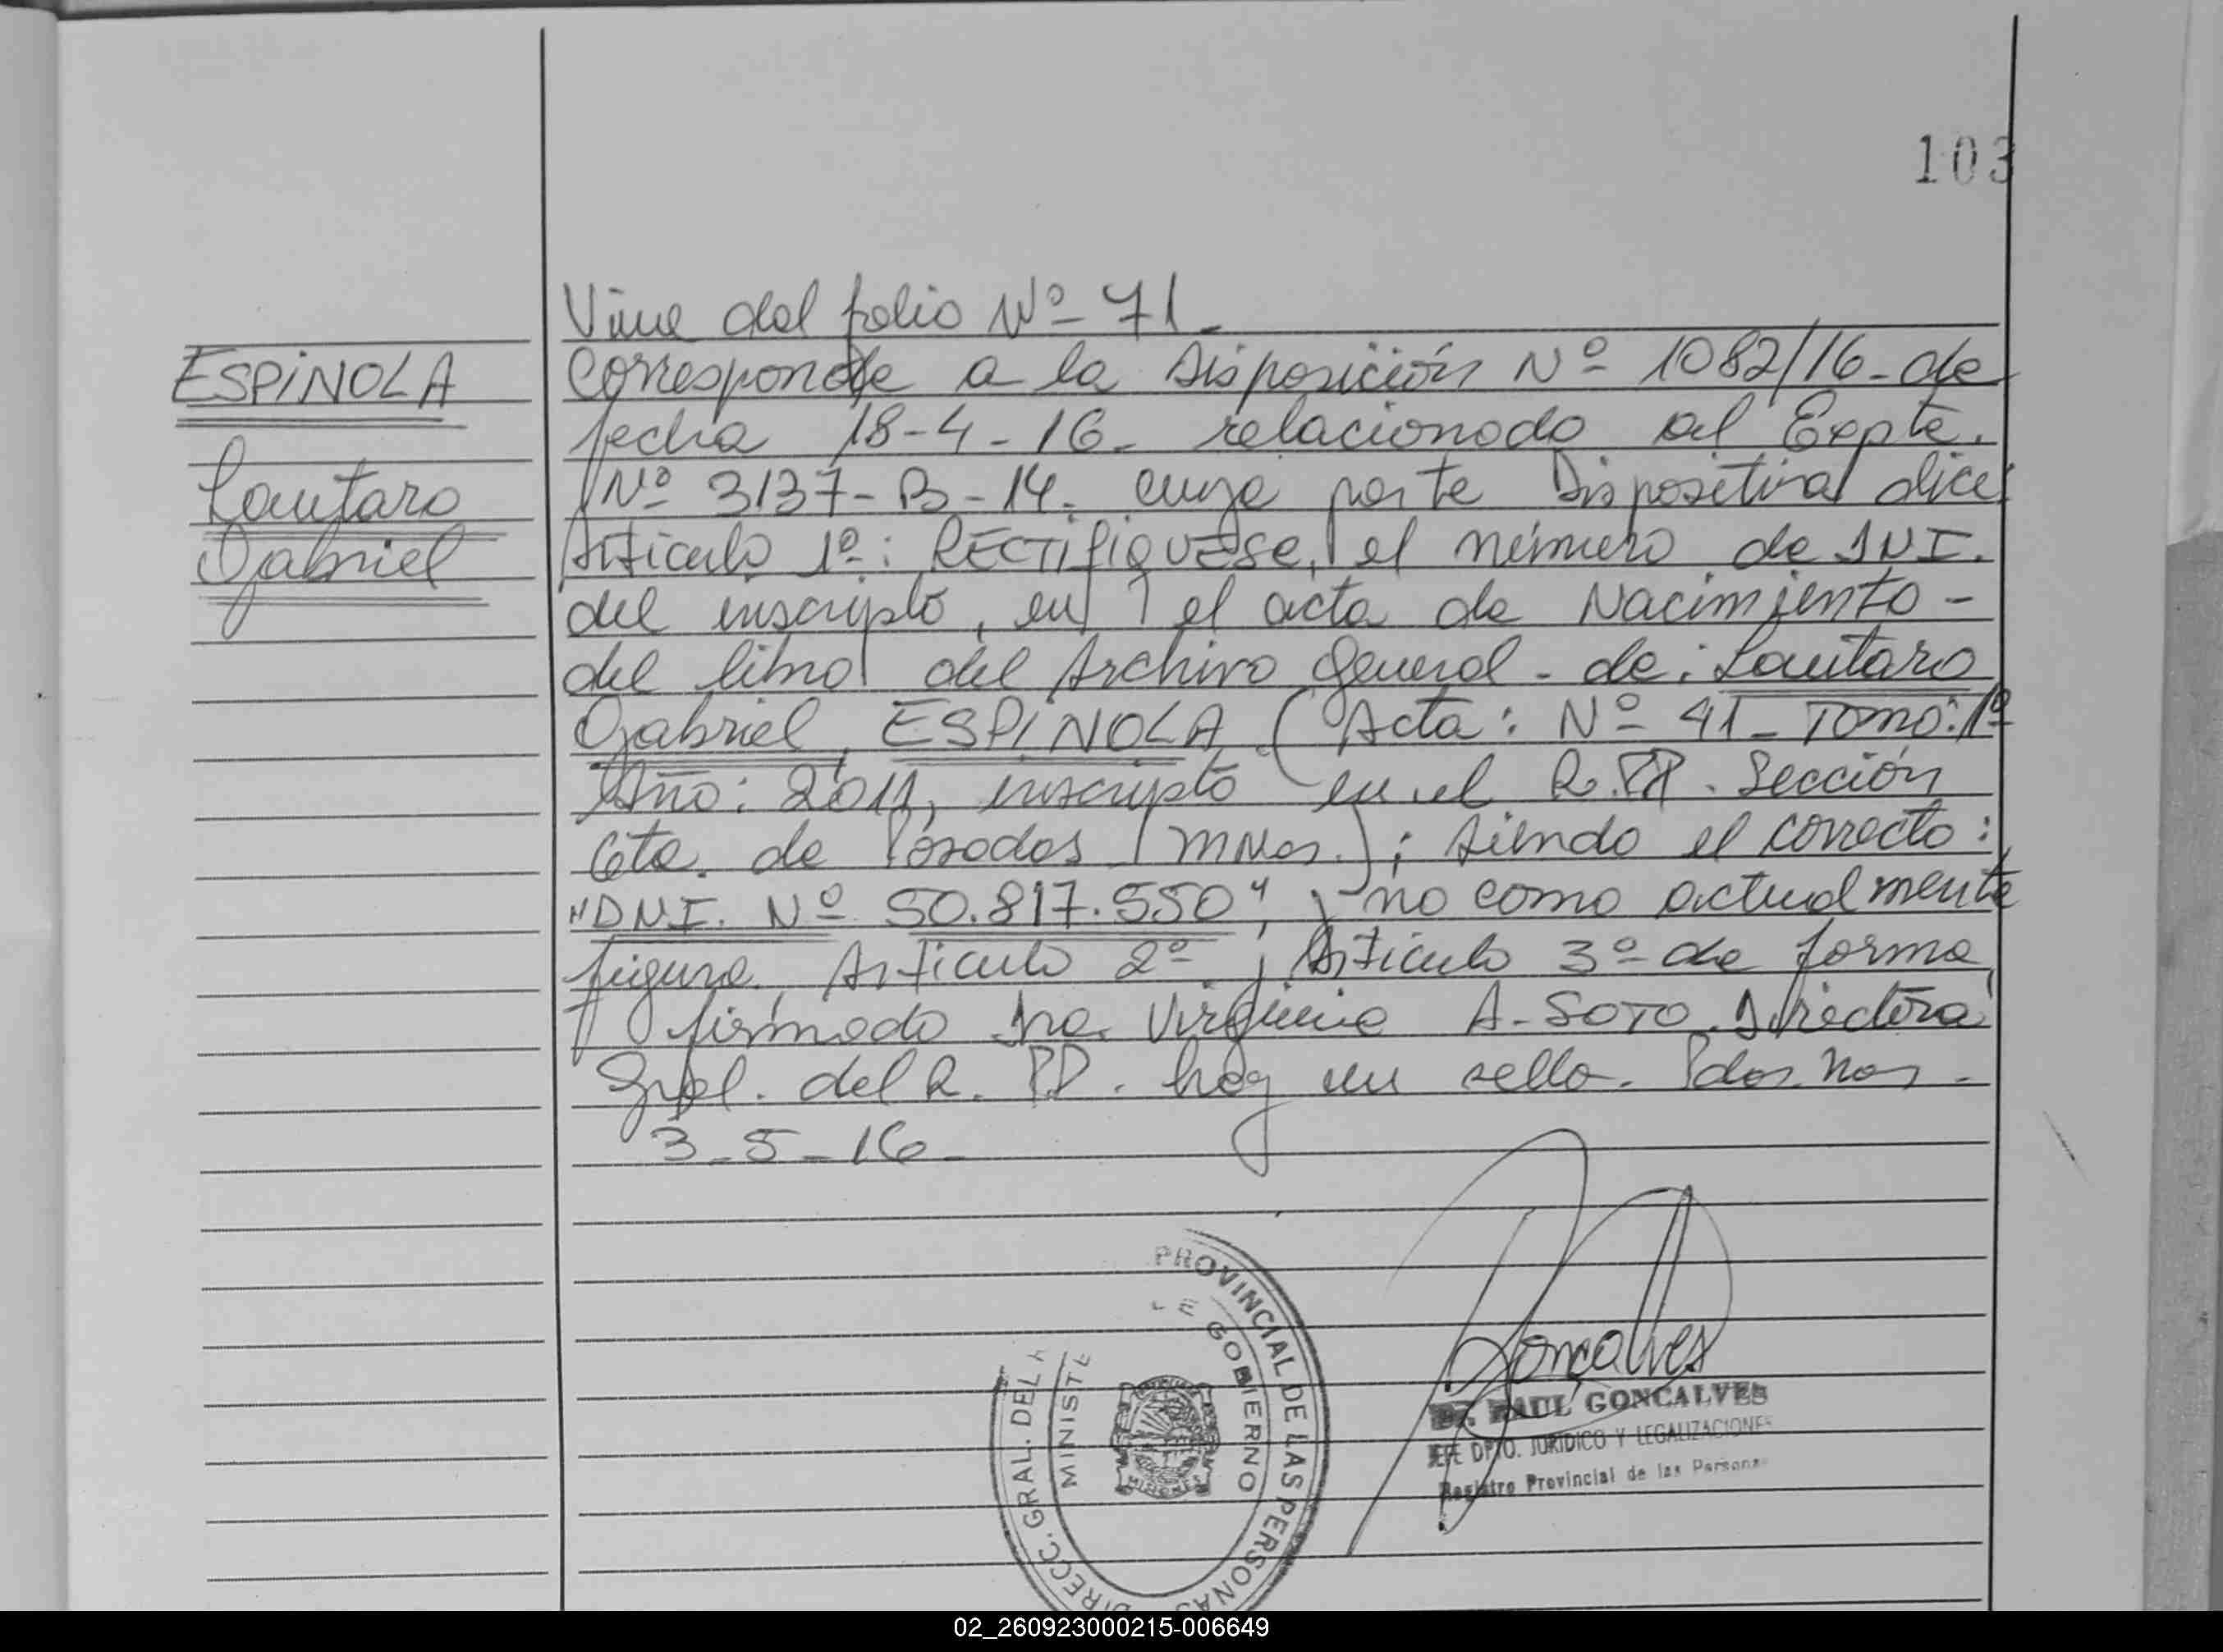 103
Viene del folio Nº 71-
ESPINOLA
Lautaro
Gabriel
Corresponde a la Disposición Nº 1082/16- de
fecha 18-4-16- relacionado al Expte.
Nº 3137-B-14. cuya parte Dispositiva dice
Articulo 1º: RECTIFIQUESE, el número de DNI.
del inscripto, en el acta de Nacimiento-
del libro del Archivo General- de: Lautaro
Gabriel, ESPINOLA (Acta: Nº 41- Tomo: 1º
Año: 2011, inscripto en el R.PP. Sección
6ta. de Posadas (Mnes.); siendo el correcto:
"DNI. Nº 50.817.550", y no como actualmente
figura. Articulo 2º y Articulo 3º de forma,
firmado Dra. Virginia A. SOTO. Directora
Gral. del R. PP. hay un sello. Pdas. Mnes-
3-5-16-
PROVINCIAL DE LAS PERSONAS
DIRECC. GRAL. DEL R
MINISTE
DE GOBIERNO
MISIONES
Goncalves
Dr. RAUL GONCALVES
JEFE DPTO. JURIDICO Y LEGALIZACIONES
Registro Provincial de las Persona
02_260923000215-006649